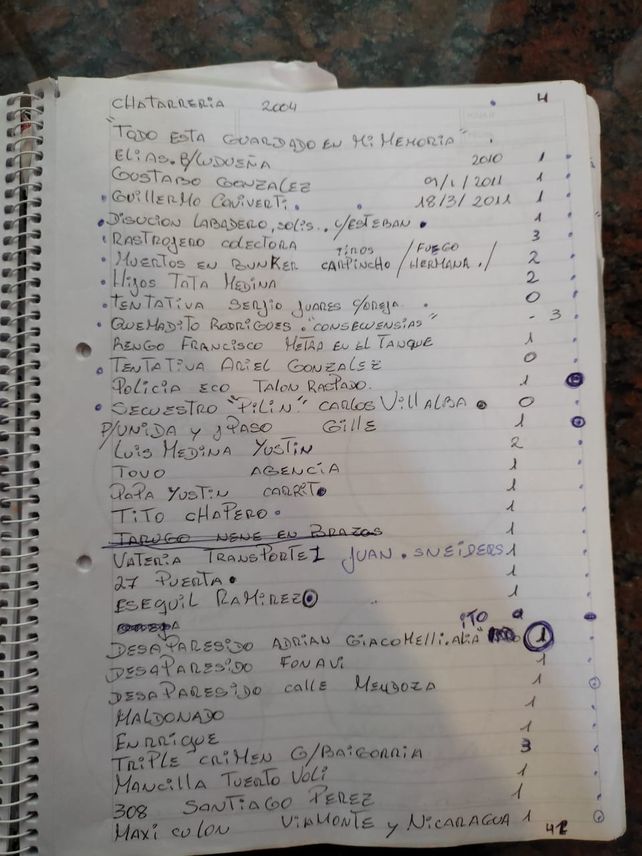 CHATARRERIA 2004 4
"TODO ESTA GUARDADO EN MI MEMORIA".
ELIAS. B/LUDUEÑA 2010 1
GUSTABO GONZALEZ 9/1/2011 1
GUILLERMO CONIVERTI. 18/3/2011 1
DISUCION LABADERO, SOLIS.. C/ESTEBAN 1
RASTROJERO COLECTORA 3
MUERTOS EN BUNKER CARPINCHO TIROS / FUEGO / HERMANA ./ 2
HIJOS TATA MEDINA 2
TENTATIVA SERJIO JUARES C/OREJA. 0
QUEMADITO RODRIGUES. "CONSECUENSIAS" - 3
RENGO FRANCISCO METRA EN EL TANQUE 1
TENTATIVA ARIEL GONZALEZ 0
POLICIA ECO TALON RASPADO. 1
SECUESTRO "PILIN" CARLOS VILLALBA 0
P/UNIDA y J PASO GILLE 1
LUIS MEDINA YUSTIN 2
TOVO AGENCIA 1
PAPA YUSTIN CARRITO 1
TITO CHAPERO. 1
TARUGO NENE EN BRAZOS 1
VATERIA TRANSPORTE 1 JUAN. SNEIDERS 1
27 PUERTA. 1
ESEQUIL RAMIREZ 1
DESAPARESIDO ADRIAN GIACOMELLI. 1
DESAPARESIDO FONAVI 1
DESAPARESIDO calle MENDOZA 1
MALDONADO 1
ENRRIQUE 1
TRIPLE CRIMEN G/BAIGORRIA 3
MANCILLA TUERTO VOLI 1
308 SANTIAGO PEREZ 1
MAXI CULON VIAMONTE y NICARAGUA 1